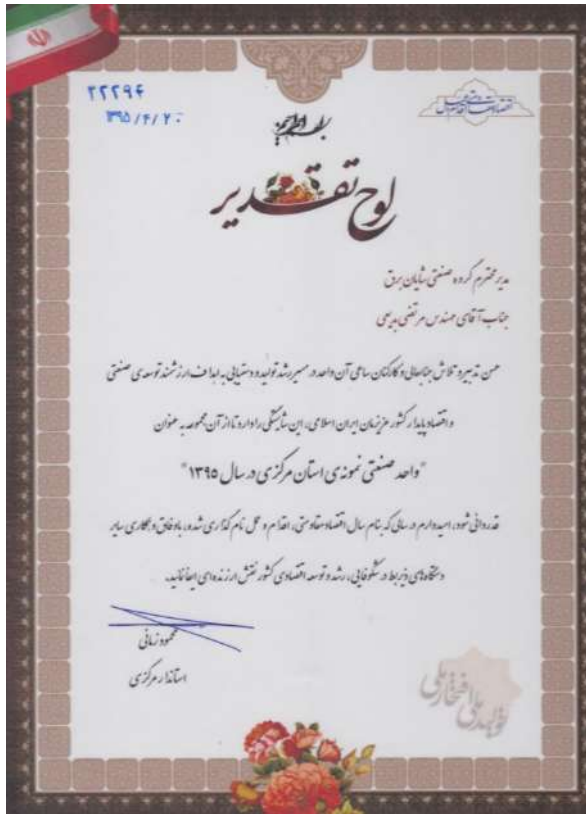 ۲۲۲۹۴
۱۳۹۵/۴/۲۰
اقتصاد مقاومتی اقدام و عمل
لوح تقدیر
مدیر محترم گروه صنعتی شایان برق
جناب آقای مهندس مرتضی بدیعی
حسن تدبیر و تلاش جنابعالی و کارکنان ساعی آن واحد در مسیر رشد تولید و دستیابی به اهداف ارزشمند توسعه‌ی صنعتی
و اقتصاد پایدار کشور عزیزمان ایران اسلامی، این شایستگی را دارد تا از آن مجموعه به عنوان
"واحد صنعتی نمونه‌ی استان مرکزی در سال ۱۳۹۵"
قدردانی شود، امیدوارم در سالی که بنام سال اقتصاد مقاومتی، اقدام و عمل نام گذاری شده، با وفاق و همکاری سایر
دستگاه‌های ذیربط در شکوفایی، رشد و توسعه اقتصادی کشور نقش ارزنده‌ای ایفا نمائید.
محمود زمانی
استاندار مرکزی
تولید ملی افتخار ملی